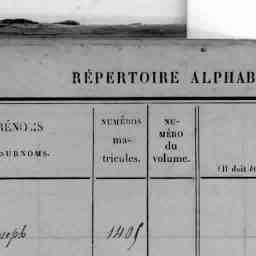 RÉPERTOIRE ALPHAB
RÉNOMS
SURNOMS.
NUMÉROS
ma-
tricules.
NU-
MÉRO
du
volume.
(Il doit
1405